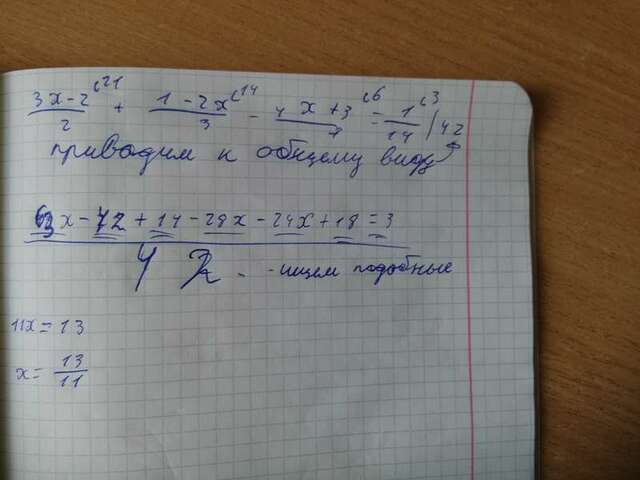 3x-2^(21 + 1-2x^(14 - 4x+3^(6 = 1^(3
2 3 7 14 | 42
приводим к общему виду
63x-42+14-28x-24x+18=3
42 - ищем подобные
11x=13
x= 13
11